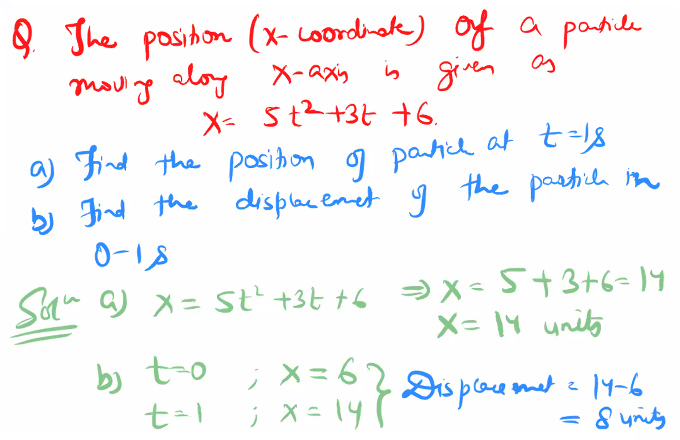 Q. The position (x-coordinate) of a particle
moving along x-axis is given as
x= 5t²+3t +6.
a) Find the position of particle at t=1s
b) Find the displacement of the particle in
0-1s
Solⁿ a) x = 5t² +3t +6 ⇒ x = 5+3+6=14
x= 14 units
b) t=0 ; x=6 } Displacement = 14-6
t=1 ; x=14 = 8 units